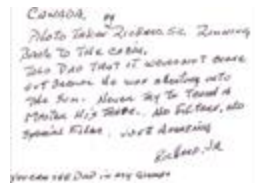 CANADA, by
Photo Taken Richard, Sr. Running
Back to The cabin.
Told Dad That it wouldn't come
out because he was shooting into
The Sun. Never Try to Teach a
Master His Trade. No Filters, No
Special Film. Just Amazing
Richard, Jr.
You can see Dad in my glasses